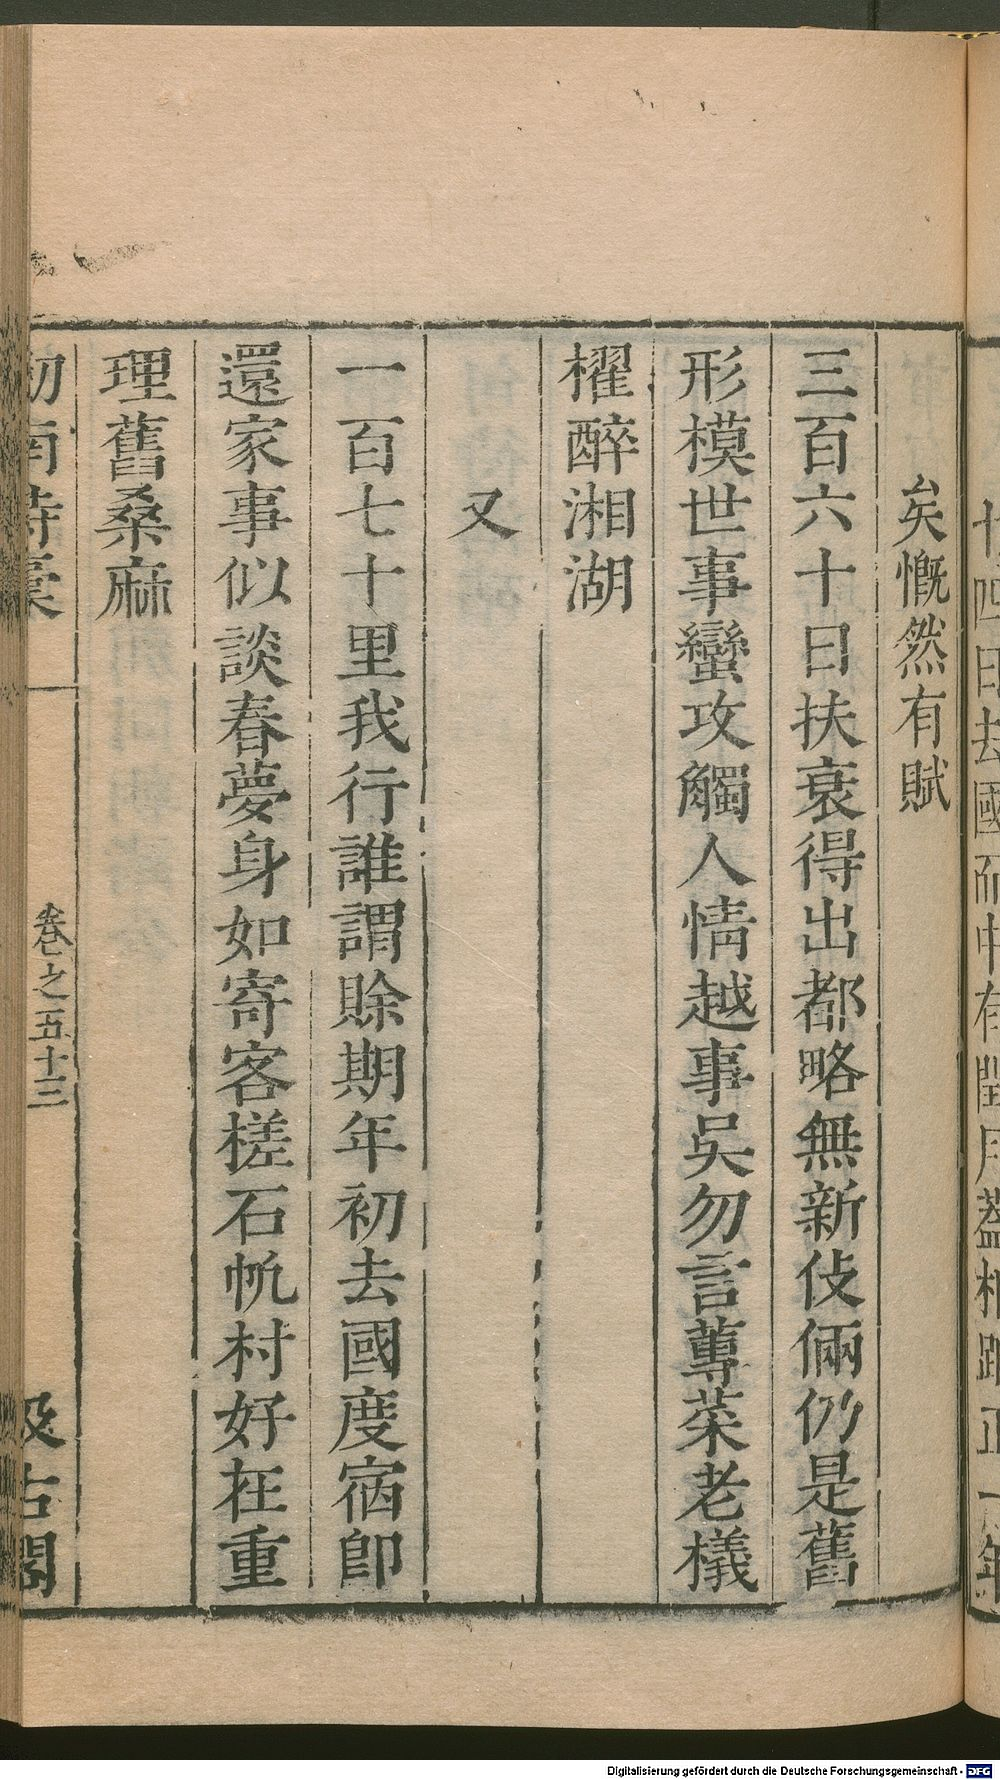 矣慨然有賦
三百六十日扶衰得出都略無新伎倆仍是舊
形模世事蠻攻觸人情越事吳勿言蓴菜老檥
櫂醉湘湖
又
一百七十里我行誰謂賒期年初去國度宿卽
還家事似談春夢身如寄客槎石帆村好在重
理舊桑麻
劒南詩稾
卷之五十三
汲古閣
Digitalisierung gefördert durch die Deutsche Forschungsgemeinschaft - DFG